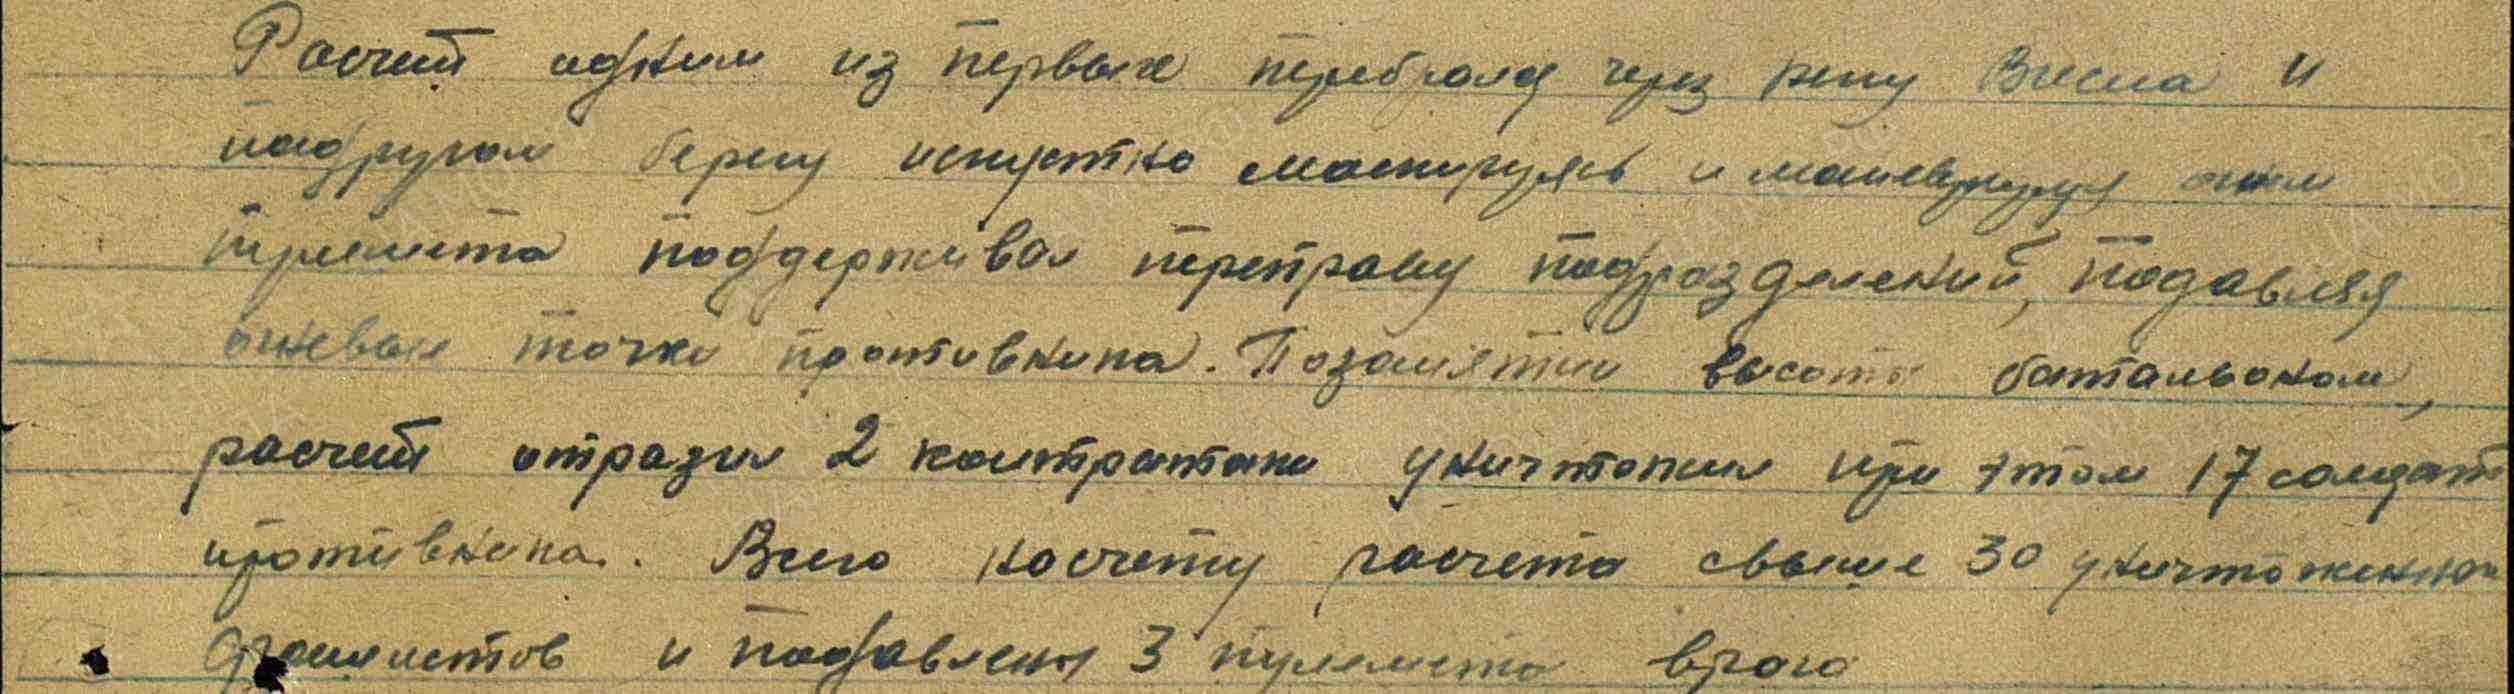 Расчет одним из первых перебрался через реку Висла и
надругом берегу искустно маскируясь и маневрируя огнем
пулемета поддерживал переправу подразделений, подавляя
огневые точки противника. Позанятии высоты батальоном,
расчет отразил 2 контратаки уничтожил при этом 17 солдат
противника. Всего насчету расчета свыше 30 уничтоженных
фашистов и подавлено 3 пулемета врага